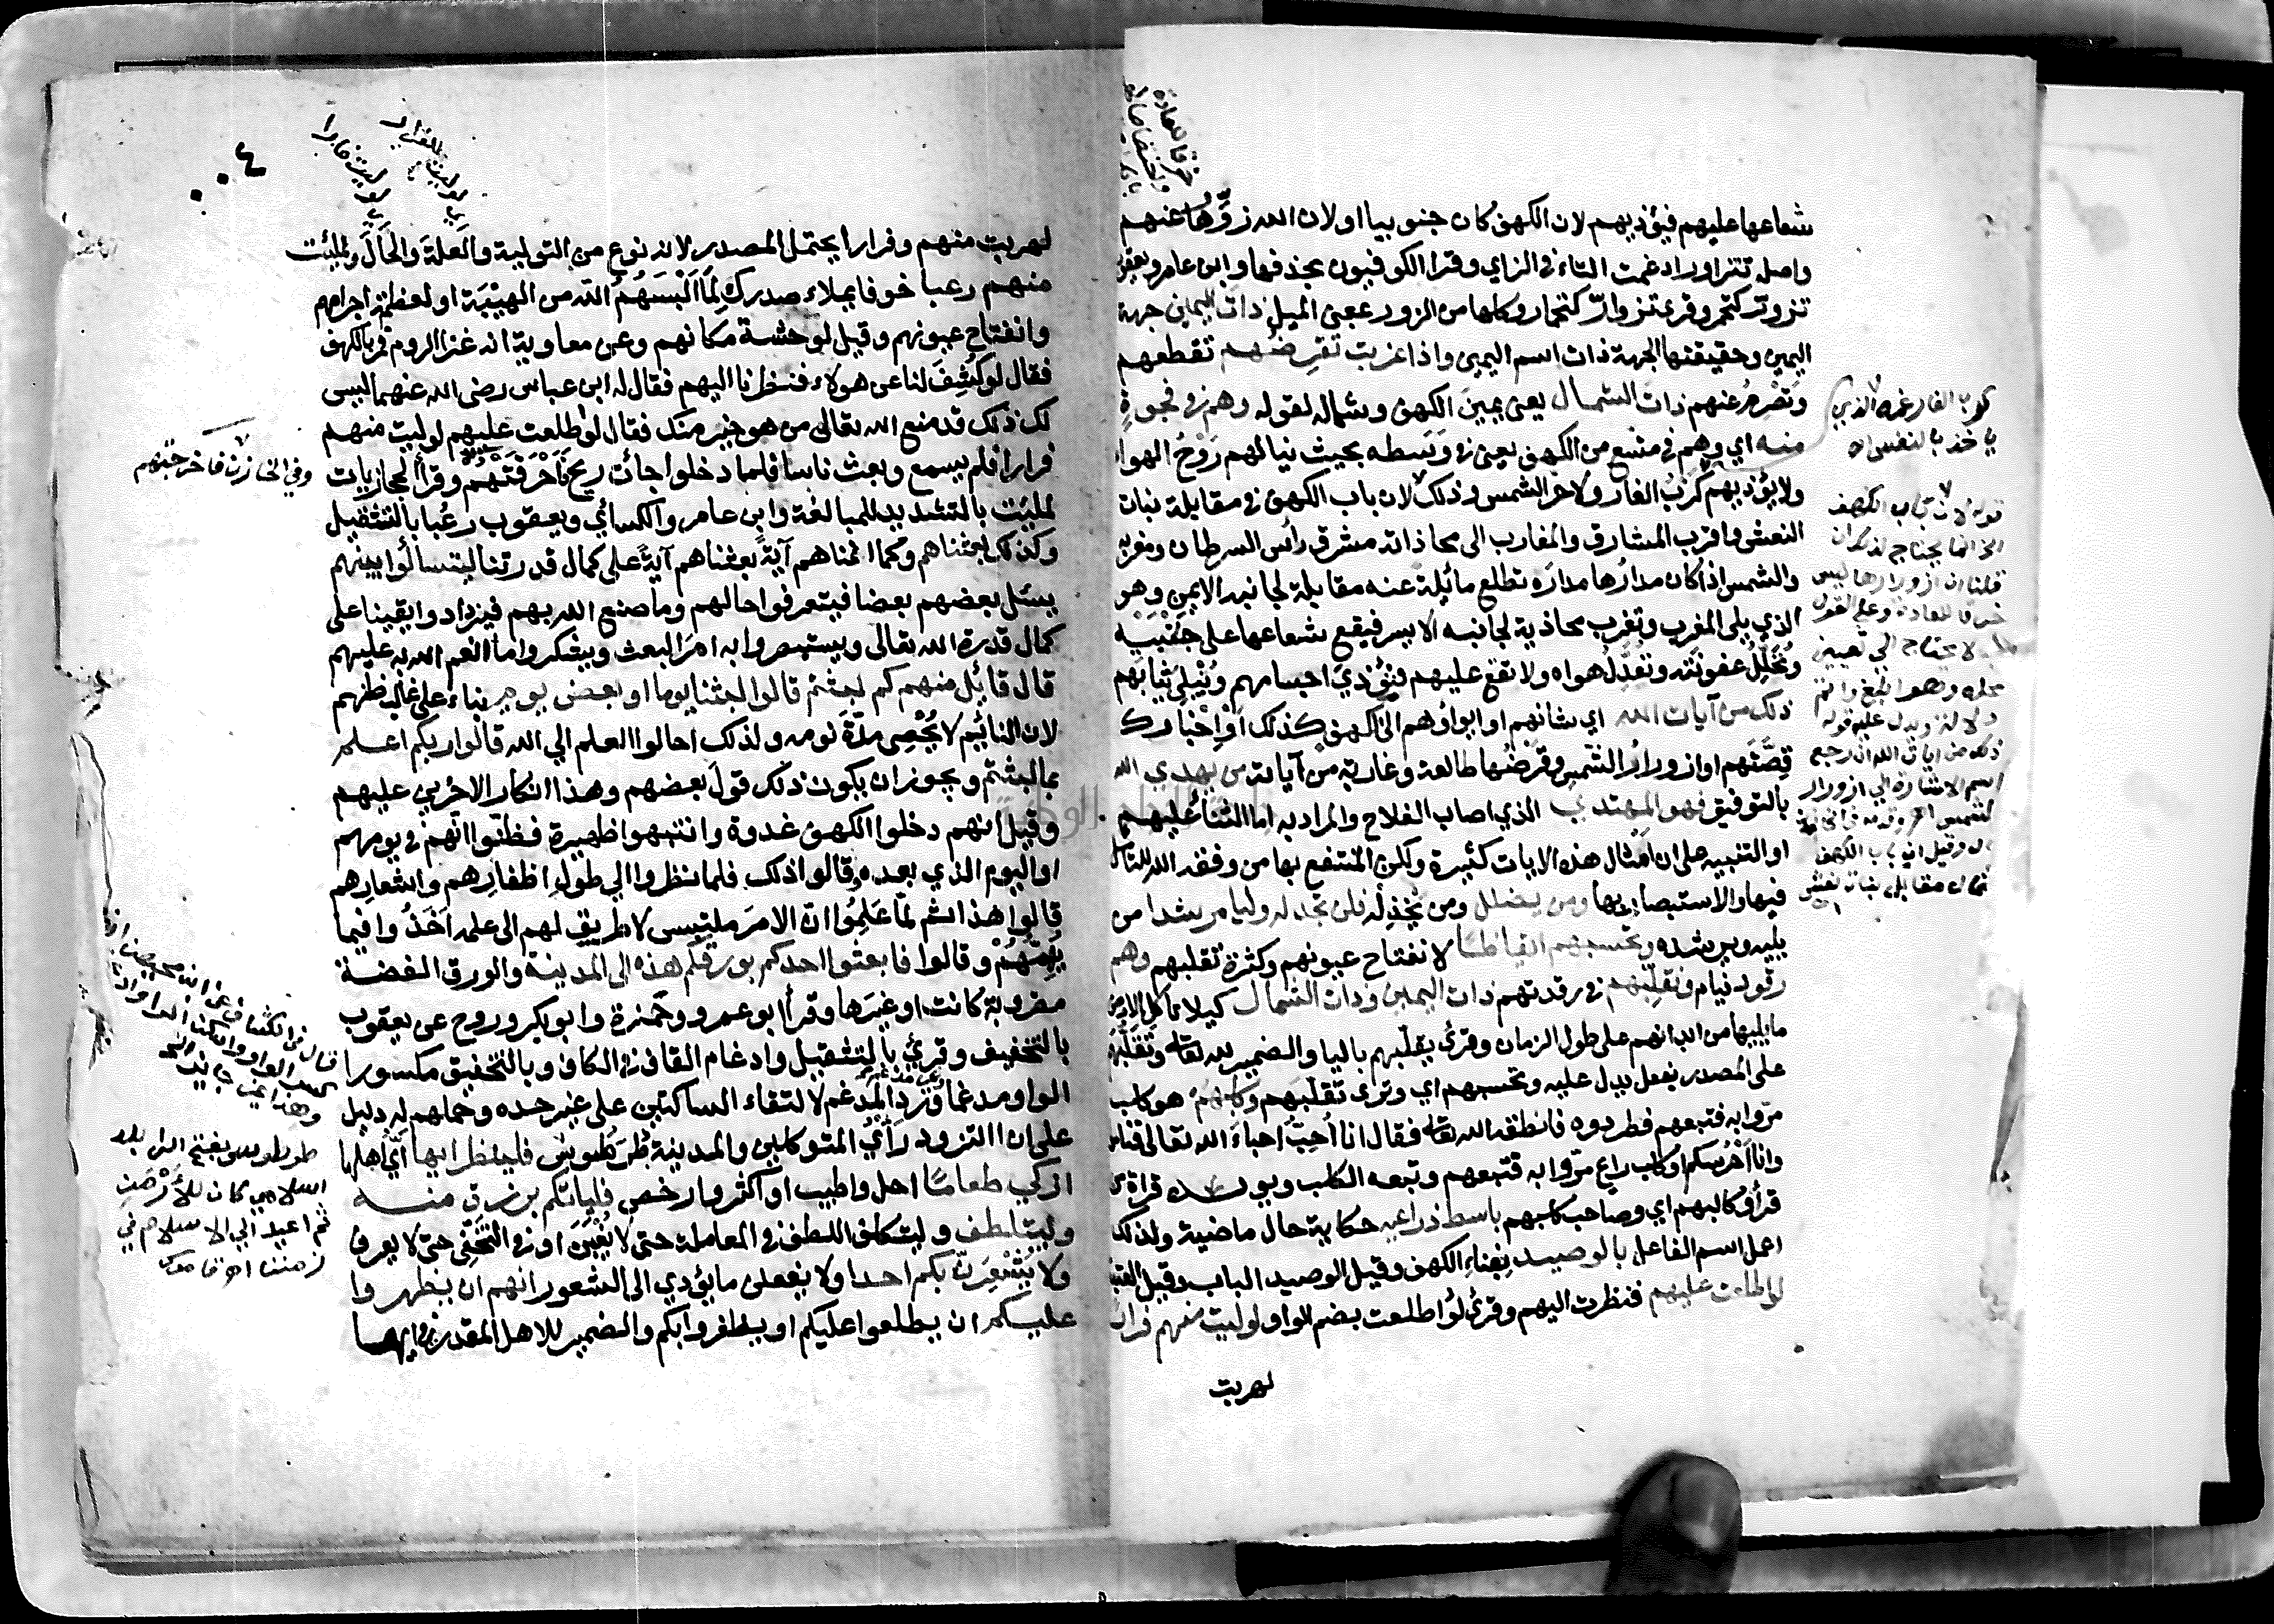 شعاعها عليهم فيؤذيهم لان الكهف كان جنوبيا او لان الله زوّرها عنهم
واصله تتزاور ادغمت التاء في الزاي وقرا الكوفيون بحذفها وابن عامر ويعقوب
تزورّ كتحمر وقرئ تزوارّ كتحمار وكلها من الزور بمعنى الميل ذات اليمين جهة
اليمين وحقيقتها الجهة ذات اسم اليمين واذا غربت تقرضهم تقطعهم
وتصرم عنهم ذات الشمال يعني يمين الكهف وشماله لقوله وهم في فجوة
منه اي وهم في متسع من الكهف يعني في وسطه بحيث ينالهم روح الهواء
ولا يؤذيهم كرب الغار ولا حر الشمس وذلك لان باب الكهف في مقابلة بنات
النعش واقرب المشارق والمغارب الى محاذاته مشرق رأس السرطان ومغربه
والشمس اذا كان مدارها مداره تطلع مائلة عنه مقابلة لجانبه الايمن وهو
الذي يلي المغرب وتغرب محاذية لجانبه الايسر فيقع شعاعها على جنبيه
ويحلل عفونته وتعدل هواه ولا تقع عليهم فيؤذي اجسامهم ويبلي ثيابهم
ذلك من آيات الله اي شانهم او ايواؤهم الى كهف كذلك او اخبارك
قصتهم او ازورار الشمس وقرضها طالعة وغاربة من آياته من يهدي الله
بالتوفيق فهو المهتدي الذي اصاب الفلاح والمراد به اما الثناء عليهم
او التنبيه على ان امثال هذه الايات كثيرة ولكن المنتفع بها من وفقه الله للتامل
فيها والاستبصار بها ومن يضلل ومن يخذله فلن تجد له وليا مرشدا من
يليه ويرشده وتحسبهم ايقاظا لانفتاح عيونهم وكثرة تقلبهم وهم
رقود نيام ونقلبهم في رقدتهم ذات اليمين وذات الشمال كيلا تاكل الارض
ما يليها من ابدانهم على طول الزمان وقرئ يقلبهم باليا والضمير لله تعالى وتقلبهم
على المصدر بفعل يدل عليه وتحسبهم اي وترى تقلبهم وكلبهم هو كلب
مرّوا به فتبعهم فطردوه فانطقه الله تعالى فقال انا احب احباء الله تعالى فناموا
وانا احرسكم او كلب راع مرّوا به فتبعهم وتبعه الكلب ويؤيده قراة من
قرأ وكالبهم اي وصاحب كلبهم باسط ذراعيه حكاية حال ماضية ولذلك
اعمل اسم الفاعل بالوصيد بفناء الكهف وقيل الوصيد الباب وقيل العتبة
لو اطلعت عليهم فنظرت اليهم وقرئ لو اطلعت بضم الواو لوليت منهم فرارا
لهربت
كرب الغار غمه الذي
ياخذ بالنفس
قوله لان باب الكهف
لهربت منهم وفرارا يحتمل المصدر لانه نوع من التولية والعلة والحال ولملئت
منهم رعبا خوفا يملاء صدرك لما البسهم الله من الهيبة او لعظم اجرامهم
وانفتاح عيونهم وقيل لوحشة مكانهم وعن معاوية انه غزا الروم فمر بالكهف
فقال لو كشف لنا عن هولاء فنظرنا اليهم فقال له ابن عباس رضي الله عنهما ليس
لك ذلك قد منع الله تعالى من هو خير منك فقال لو اطلعت عليهم لوليت منهم
فرارا فلم يسمع وبعث ناسا فلما دخلوا جائت ريح فاحرقتهم وقرأ الحجازيات
لملئت بالتشديد للمبالغة وابن عامر والكسائي ويعقوب رعبا بالتثقيل
وكذلك بعثناهم وكما انمناهم آية بعثناهم آية على كمال قدرتنا ليتسائلوا بينهم
يسئل بعضهم بعضا فيتعرفوا حالهم وما صنع الله بهم فيزدادوا يقينا على
كمال قدرة الله تعالى ويستبصروا به امر البعث ويشكروا ما انعم الله به عليهم
قال قائل منهم كم لبثتم قالوا لبثنا يوما او بعض يوم بناء على غالب ظنهم
لان النائم لا يحصي مدة نومه ولذلك احالوا العلم الي الله قالوا ربكم اعلم
بما لبثتم ويجوز ان يكون ذلك قول بعضهم وهذا انكار الاخرين عليهم
وقيل انهم دخلوا الكهف غدوة وانتبهوا ظهيرة فظنوا انهم في يومهم
او اليوم الذي بعده وقالوا ذلك فلما نظروا الي طول اظفارهم واشعارهم
قالوا هذا ثم لما علموا ان الامر ملتبس لا طريق لهم الى علمه اخذوا فيما
يهمهم وقالوا فابعثوا احدكم بورقكم هذه الى المدينة والورق الفضة
مضروبة كانت او غيرها وقرأ ابو عمرو وحمزة وابو بكر وروح عن يعقوب
بالتخفيف وقرئ بالتثقيل وادغام القاف في الكاف وبالتخفيف مكسورا
الواو مدغما وردّ المدغم لالتقاء الساكنين على غير حده وحملهم له دليل
على ان التزود رأي المتوكلين والمدينة طرسوس فلينظر ايها اي اهلها
ازكى طعاما احل واطيب او اكثر وارخص فلياتكم برزق منه
وليتلطف وليتكلف اللطف في المعاملة حتى لا يغبن او في التخفي حتى لا يعرف
ولا يشعرن بكم احدا ولا يفعلن ما يؤدي الى الشعور انهم ان يظهروا
عليكم ان يطلعوا عليكم او يظفروا بكم والضمير للاهل المقدر في ايها
وفي الخازن فاخرجتهم
طرسوس بفتح الراء بلد
اسلامي كان للأرمن
ثم اعيد الي الاسلام في
زمننا